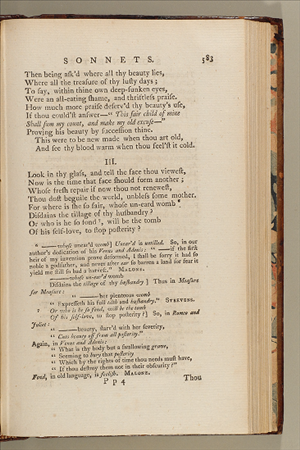 SONNETS. 583
Then being ask'd where all thy beauty lies,
Where all the treasure of thy lusty days;
To say, within thine own deep-sunken eyes,
Were an all-eating shame, and thriftless praise.
How much more praise deserv'd thy beauty's use,
If thou could'st answer—"This fair child of mine
Shall sum my count, and make my old excuse—"
Proving his beauty by succession thine.
This were to be new made when thou art old,
And see thy blood warm when thou feel'st it cold.
III.
Look in thy glass, and tell the face thou viewest,
Now is the time that face should form another;
Whose fresh repair if now thou not renewest,
Thou dost beguile the world, unbless some mother.
For where is she so fair, whose un-ear'd womb
Disdains the tillage of thy husbandry?
Or who is he so fond, will be the tomb
Of his self-love, to stop posterity?
whose unear'd womb] Unear'd is untilled. So, in our
author's dedication of his Venus and Adonis: "— if the first
heir of my invention prove deformed, I shall be sorry it had so
noble a godfather, and never after ear so barren a land for fear it
yield me still so bad a harvest." MALONE.
whose un-ear'd womb
Disdains the tillage of thy husbandry?] Thus in Measure
for Measure:
"—— her plenteous womb
"Expresseth his full tilth and husbandry." STEEVENS.
Or who is he so fond, will be the tomb
Of his self-love, to stop posterity?] So, in Romeo and
Juliet:
"—— beauty, starv'd with her severity,
"Cuts beauty off from all posterity."
Again, in Venus and Adonis:
"What is thy body but a swallowing grave,
"Seeming to bury that posterity
"Which by the rights of time thou needs must have,
"If thou destroy them not in their obscurity?"
Fond, in old language, is foolish. MALONE.
P p 4 Thou